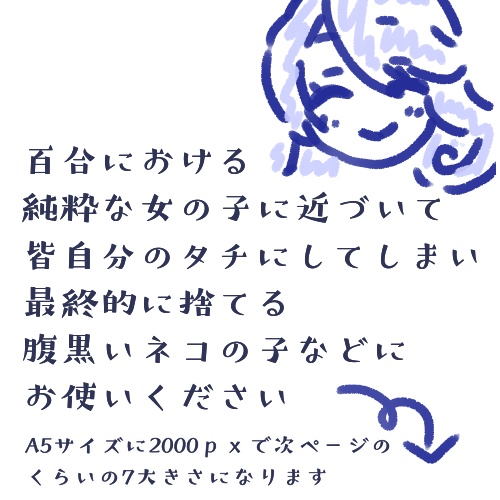 百合における
純粋な女の子に近づいて
皆自分のタチにしてしまい
最終的に捨てる
腹黒いネコの子などに
お使いください
A5サイズに2000pxで次ページの
くらいの7大きさになります